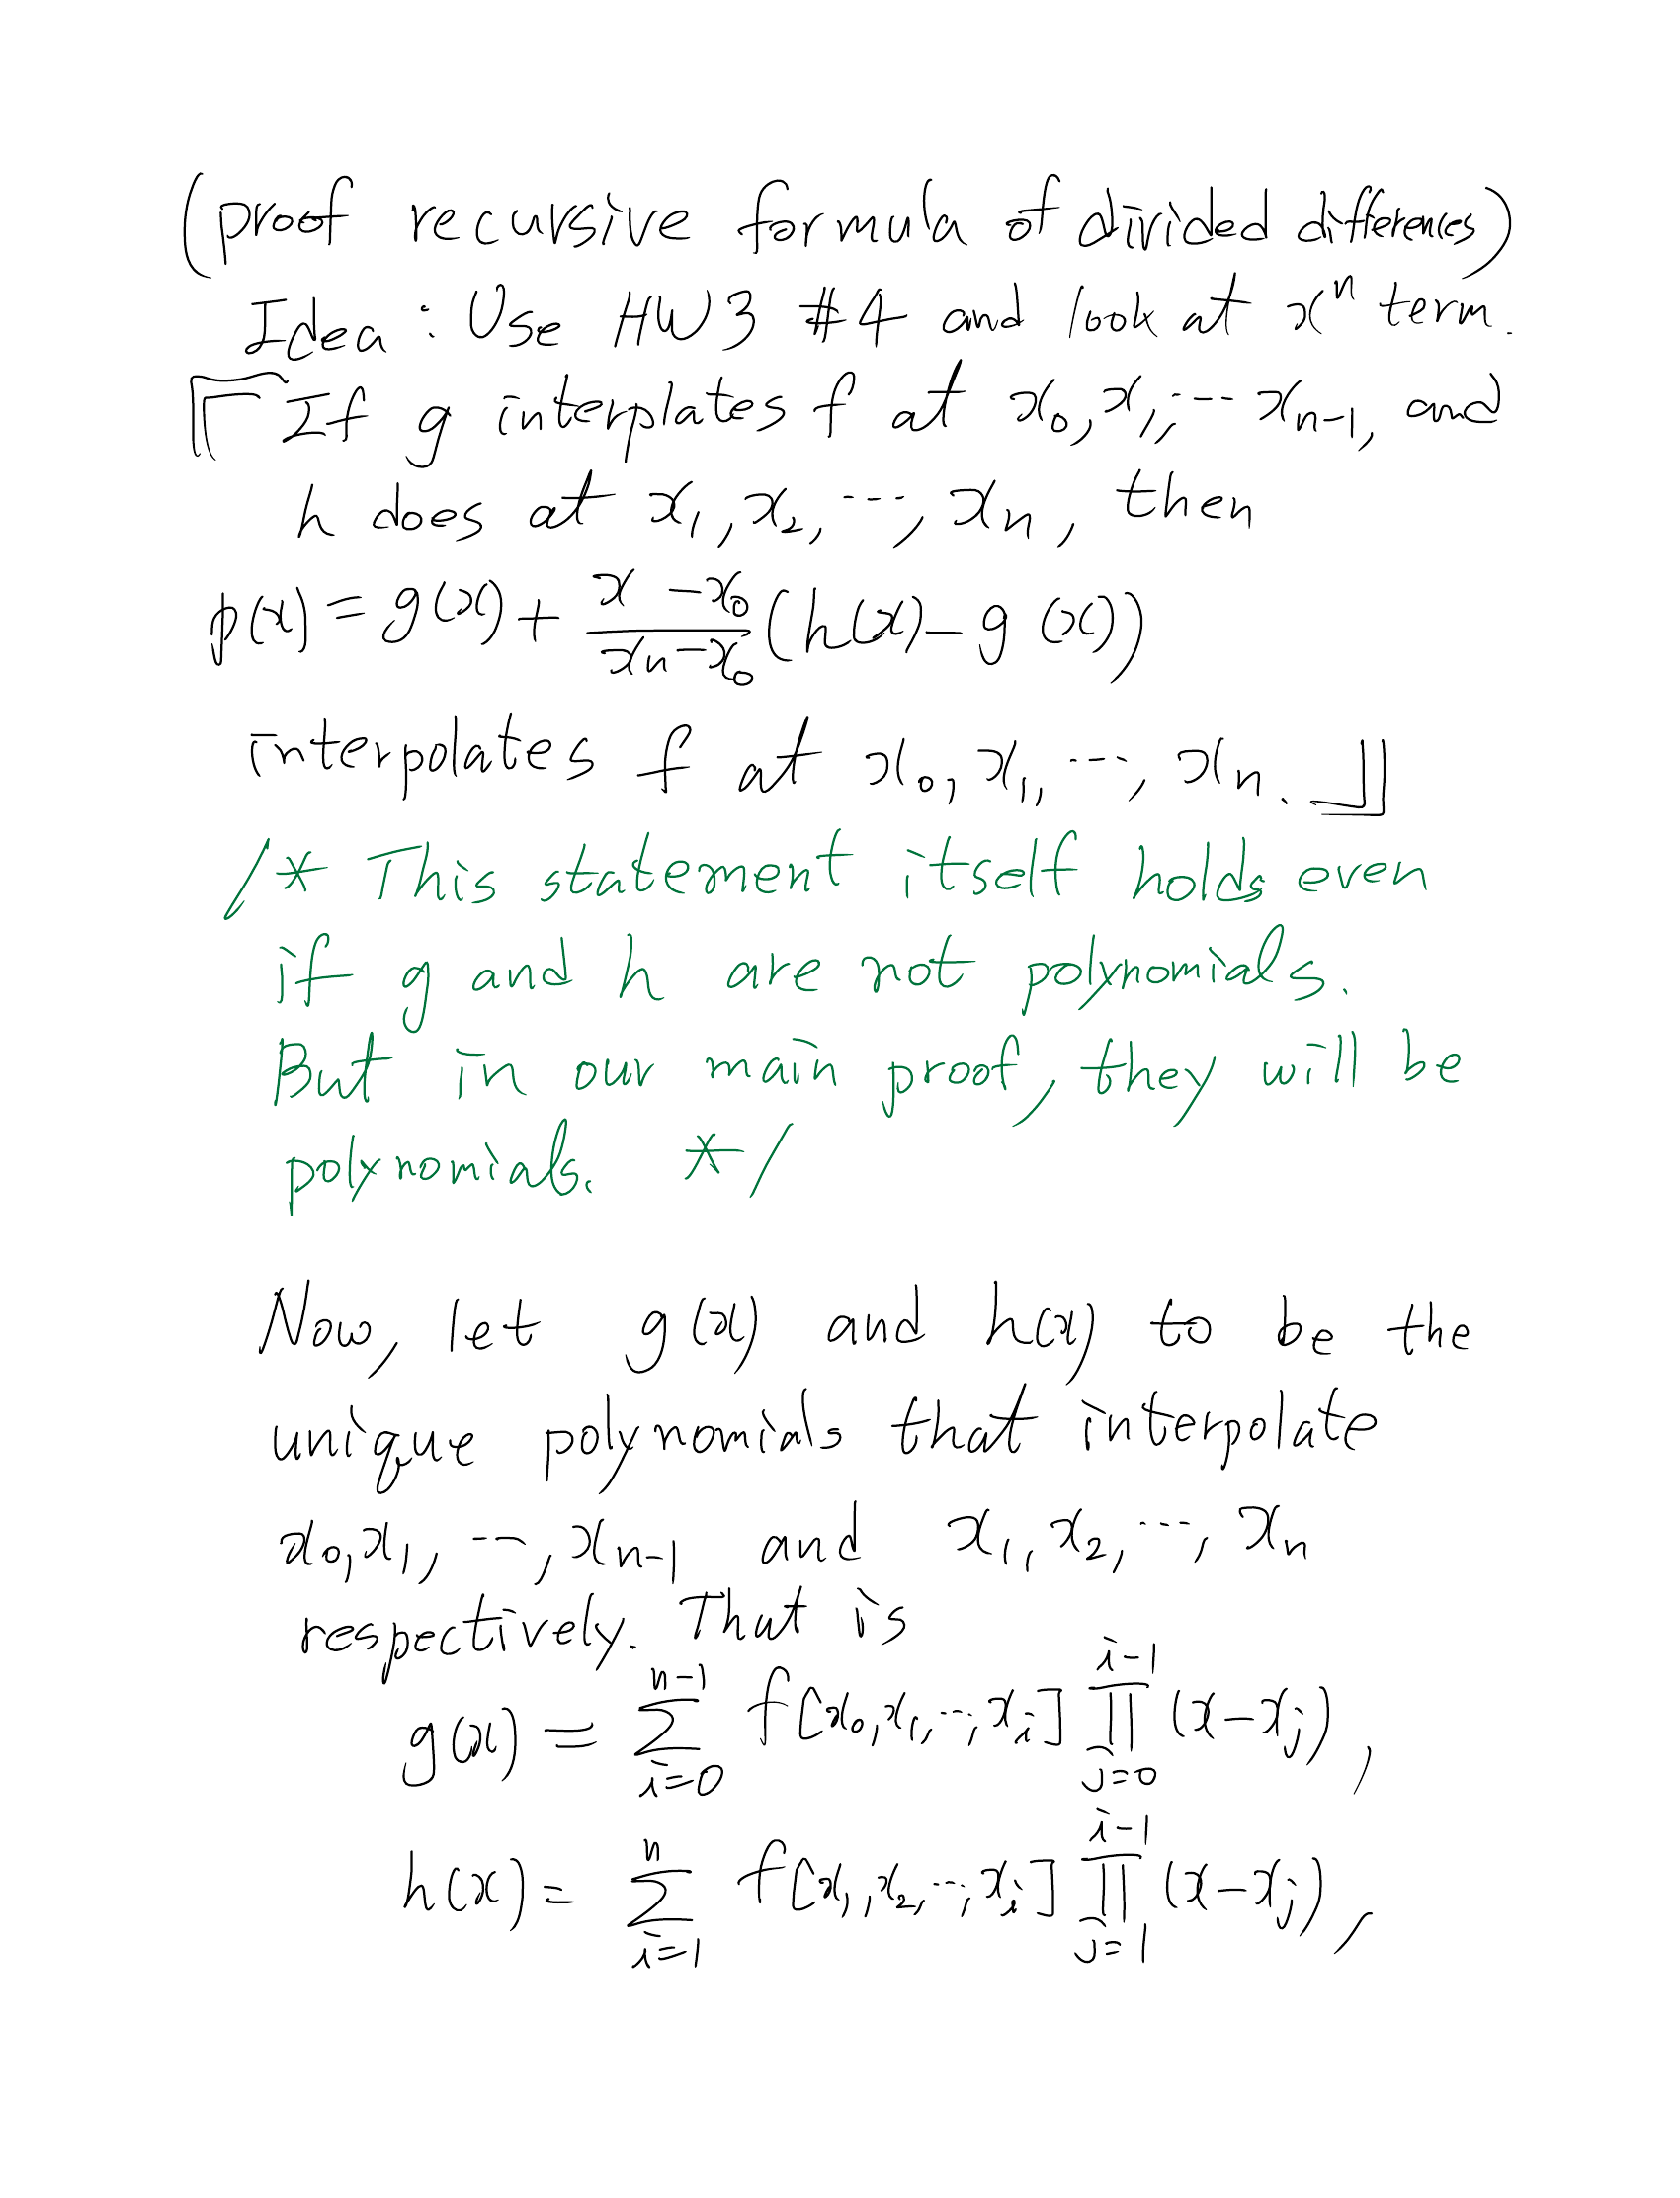 (proof recursive formula of divided differences)
Idea : Use HW3 #4 and look at xⁿ term.
「If g interplates f at x₀, x₁, ⋯ xₙ₋₁, and
h does at x₁, x₂, ⋯, xₙ, then
p(x) = g(x) + \frac{x - x₀}{xₙ - x₀} (h(x) - g(x))
interpolates f at x₀, x₁, ⋯, xₙ. 」
/* This statement itself holds even
if g and h are not polynomials.
But in our main proof, they will be
polynomials. */
Now, let g(x) and h(x) to be the
unique polynomials that interpolate
x₀, x₁, ⋯, xₙ₋₁ and x₁, x₂, ⋯, xₙ
respectively. That is
g(x) = \sum_{i=0}^{n-1} f[x₀, x₁, ⋯, x_i] \prod_{j=0}^{i-1} (x - x_j),
h(x) = \sum_{i=1}^{n} f[x₁, x₂, ⋯, x_i] \prod_{j=1}^{i-1} (x - x_j),